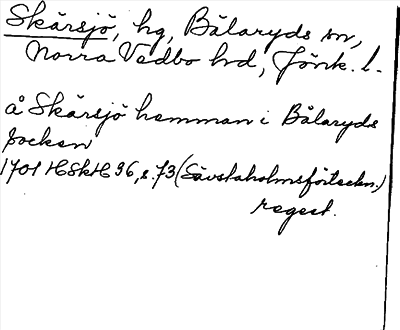 Skärsjö, hg, Bälaryds sn,
Norra Vedbo hd, Jönk. l.
å Skärsjö hemman i Bälaryds
socken
1701 HSkH 36, s. 73 (Sävstaholmsförteckn.)
regest.